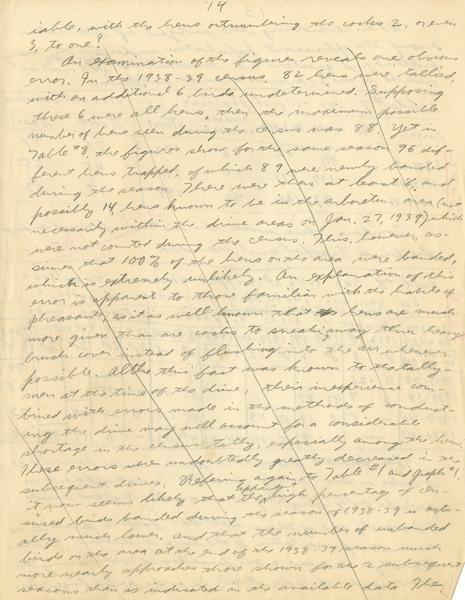 14
iable, with the hens outnumbering the cocks 2, or even
3, to one?
An examination of the figures reveals one obvious
error. In the 1938-39 census, 82 hens were tallied,
with an additional 6 birds undetermined. Supposing
these 6 were all hens, then the maximum possible
number of hens seen during the census was 88. Yet in
Table #8, the figures show for the same season 96 dif-
ferent hens trapped, of which 89 were newly banded
during the season. There were then at least 8, and
possibly 14, hens known to be in the arboretum area (not
necessarily within the drive areas on Jan. 27, 1939) which
were not counted during the census. This, however, as-
sumes that 100% of the hens on the area were banded,
which is extremely unlikely. An explanation of this
error is apparent to those familiar with the habits of
pheasants, as it is well known that hens are much
more given than are cocks to sneaking away thru heavy
brush cover instead of flushing into the air whenever
possible. Altho this fact was known to the tally-
men at the time of the drive, their inexperience com-
bined with errors made in the methods of conduct-
ing the drive may well account for a considerable
shortage in the census tally, especially among the hens.
These errors were undoubtedly greatly decreased in the
subsequent drives. Refering again to Table #1 and graph #1,
it now seems likely that the apparently high percentage of cen-
sused birds banded during the season of 1938-39 is actu-
ally much lower, and that the number of unbanded
birds on the area at the end of the 1938-39 season much
more nearly approaches those shown for the 2 subsequent
seasons than is indicated in the available data. The